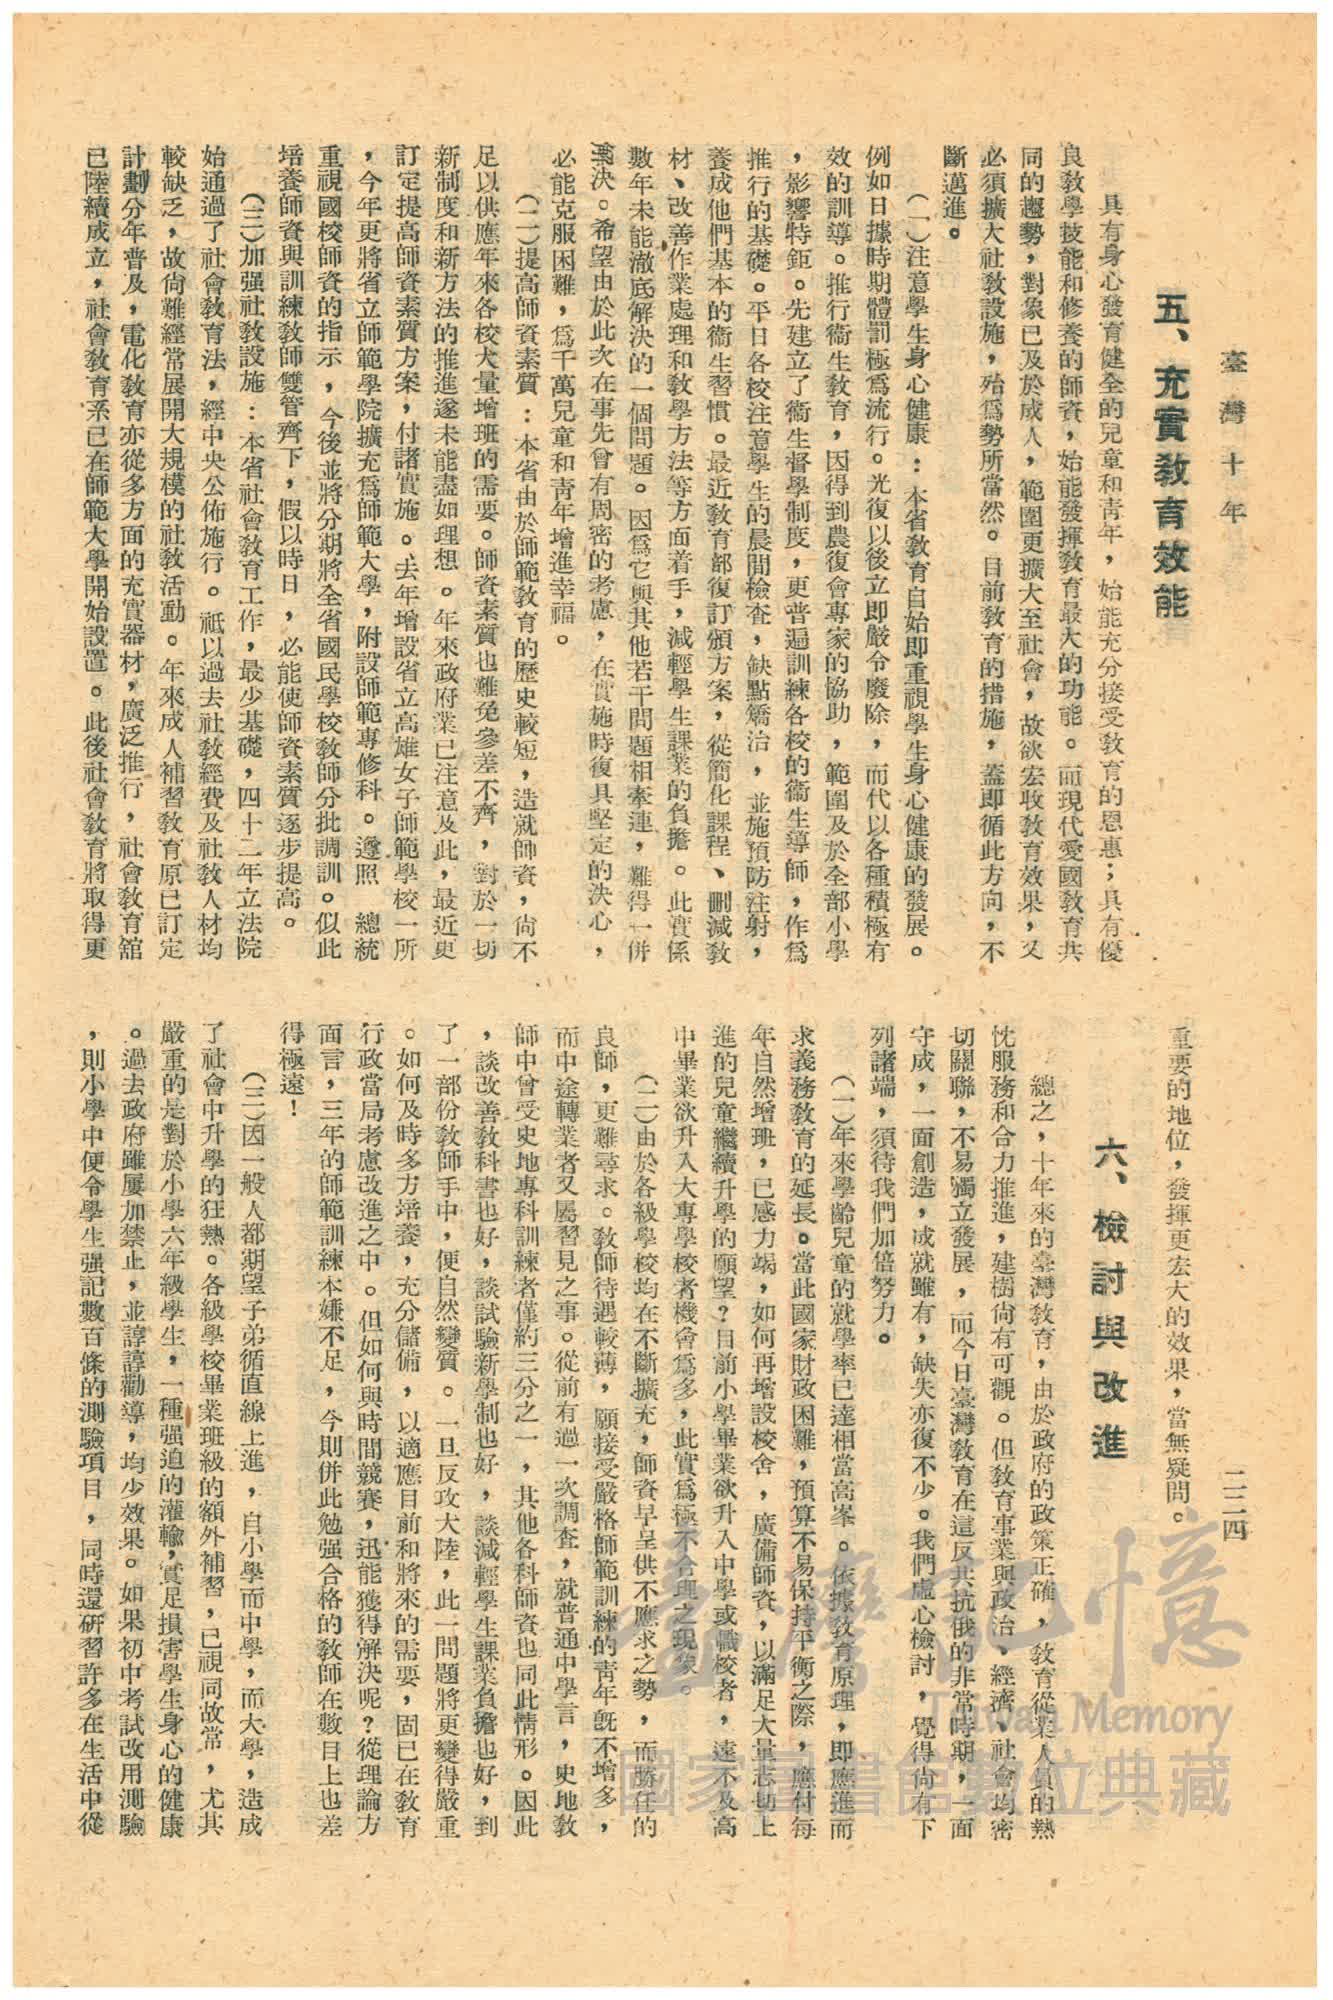 臺灣十年
二二四
五、充實教育效能
具有身心發育健全的兒童和青年，始能充分接受教育的恩惠；具有優
良教學技能和修養的師資，始能發揮教育最大的功能。而現代愛國教育共
同的趨勢，對象已及於成人，範圍更擴大至社會，故欲宏收教育效果，又
必須擴大社教設施，殆為勢所當然。目前教育的措施，蓋即循此方向，不
斷邁進。
（一）注意學生身心健康：本省教育自始即重視學生身心健康的發展。
例如日據時期體罰極為流行。光復以後立即嚴令廢除，而代以各種積極有
效的訓導。推行衛生教育，因得到農復會專家的協助，範圍及於全部小學
，影響特鉅。先建立了衛生督學制度，更普遍訓練各校的衛生導師，作為
推行的基礎。平日各校注意學生的晨間檢查，缺點矯治，並施預防注射，
養成他們基本的衛生習慣。最近教育部復訂頒方案，從簡化課程、刪減教
材、改善作業處理和教學方法等方面着手，減輕學生課業的負擔。此實係
數年未能澈底解決的一個問題。因為它與其他若干問題相牽連，難得一併
解決。希望由於此次在事先曾有周密的考慮，在實施時復具堅定的決心，
必能克服困難，為千萬兒童和青年增進幸福。
（二）提高師資素質：本省由於師範教育的歷史較短，造就師資，尚不
足以供應年來各校大量增班的需要。師資素質也難免參差不齊，對於一切
新制度和新方法的推進遂未能盡如理想。年來政府業已注意及此，最近更
訂定提高師資素質方案，付諸實施。去年增設省立高雄女子師範學校一所
，今年更將省立師範學院擴充為師範大學，附設師範專修科。遵照　總統
重視國校師資的指示，今後並將分期將全省國民學校教師分批調訓。似此
培養師資與訓練教師雙管齊下，假以時日，必能使師資素質逐步提高。
（三）加强社教設施：本省社會教育工作，最少基礎，四十二年立法院
始通過了社會教育法，經中央公佈施行。祗以過去社教經費及社教人材均
較缺乏，故尚難經常展開大規模的社教活動。年來成人補習教育原已訂定
計劃分年普及，電化教育亦從多方面的充實器材，廣泛推行，社會教育舘
已陸續成立，社會教育系已在師範大學開始設置。此後社會教育將取得更
重要的地位，發揮更宏大的效果，當無疑問。
六、檢討與改進
總之，十年來的臺灣教育，由於政府的政策正確，教育從業人員的熱
忱服務和合力推進，建樹尚有可觀。但教育事業與政治、經濟、社會均密
切關聯，不易獨立發展，而今日臺灣教育在這反共抗俄的非常時期，一面
守成，一面創造，成就雖有，缺失亦復不少。我們虛心檢討，覺得尚有下
列諸端，須待我們加倍努力。
（一）年來學齡兒童的就學率已達相當高峯。依據教育原理，即應進而
求義務教育的延長。當此國家財政困難，預算不易保持平衡之際，應付每
年自然增班，已感力竭，如何再增設校舍，廣備師資，以滿足大量志切上
進的兒童繼續升學的願望？目前小學畢業欲升入中學或職校者，遠不及高
中畢業欲升入大專學校者機會為多，此實為極不合理之現象。
（二）由於各級學校均在不斷擴充，師資早呈供不應求之勢，而勝任的
良師，更難尋求。教師待遇較薄，願接受嚴格師範訓練的青年既不增多，
而中途轉業者又屬習見之事。從前有過一次調查，就普通中學言，史地教
師中曾受史地專科訓練者僅約三分之一，其他各科師資也同此情形。因此
，談改善教科書也好，談試驗新學制也好，談減輕學生課業負擔也好，到
了一部份教師手中，便自然變質。一旦反攻大陸，此一問題將更變得嚴重
。如何及時多方培養，充分儲備，以適應目前和將來的需要，固已在教育
行政當局考慮改進之中。但如何與時間競賽，迅能獲得解決呢？從理論方
面言，三年的師範訓練本嫌不足，今則併此勉强合格的教師在數目上也差
得極遠！
（三）因一般人都期望子弟循直線上進，自小學而中學，而大學，造成
了社會中升學的狂熱。各級學校畢業班級的額外補習，已視同故常，尤其
嚴重的是對於小學六年級學生，一種强迫的灌輸，實足損害學生身心的健康
。過去政府雖屢加禁止，並諄諄勸導，均少效果。如果初中考試改用測驗
，則小學中便令學生强記數百條的測驗項目，同時還研習許多在生活中從
臺灣記憶
Taiwan Memory
國家圖書館數位典藏